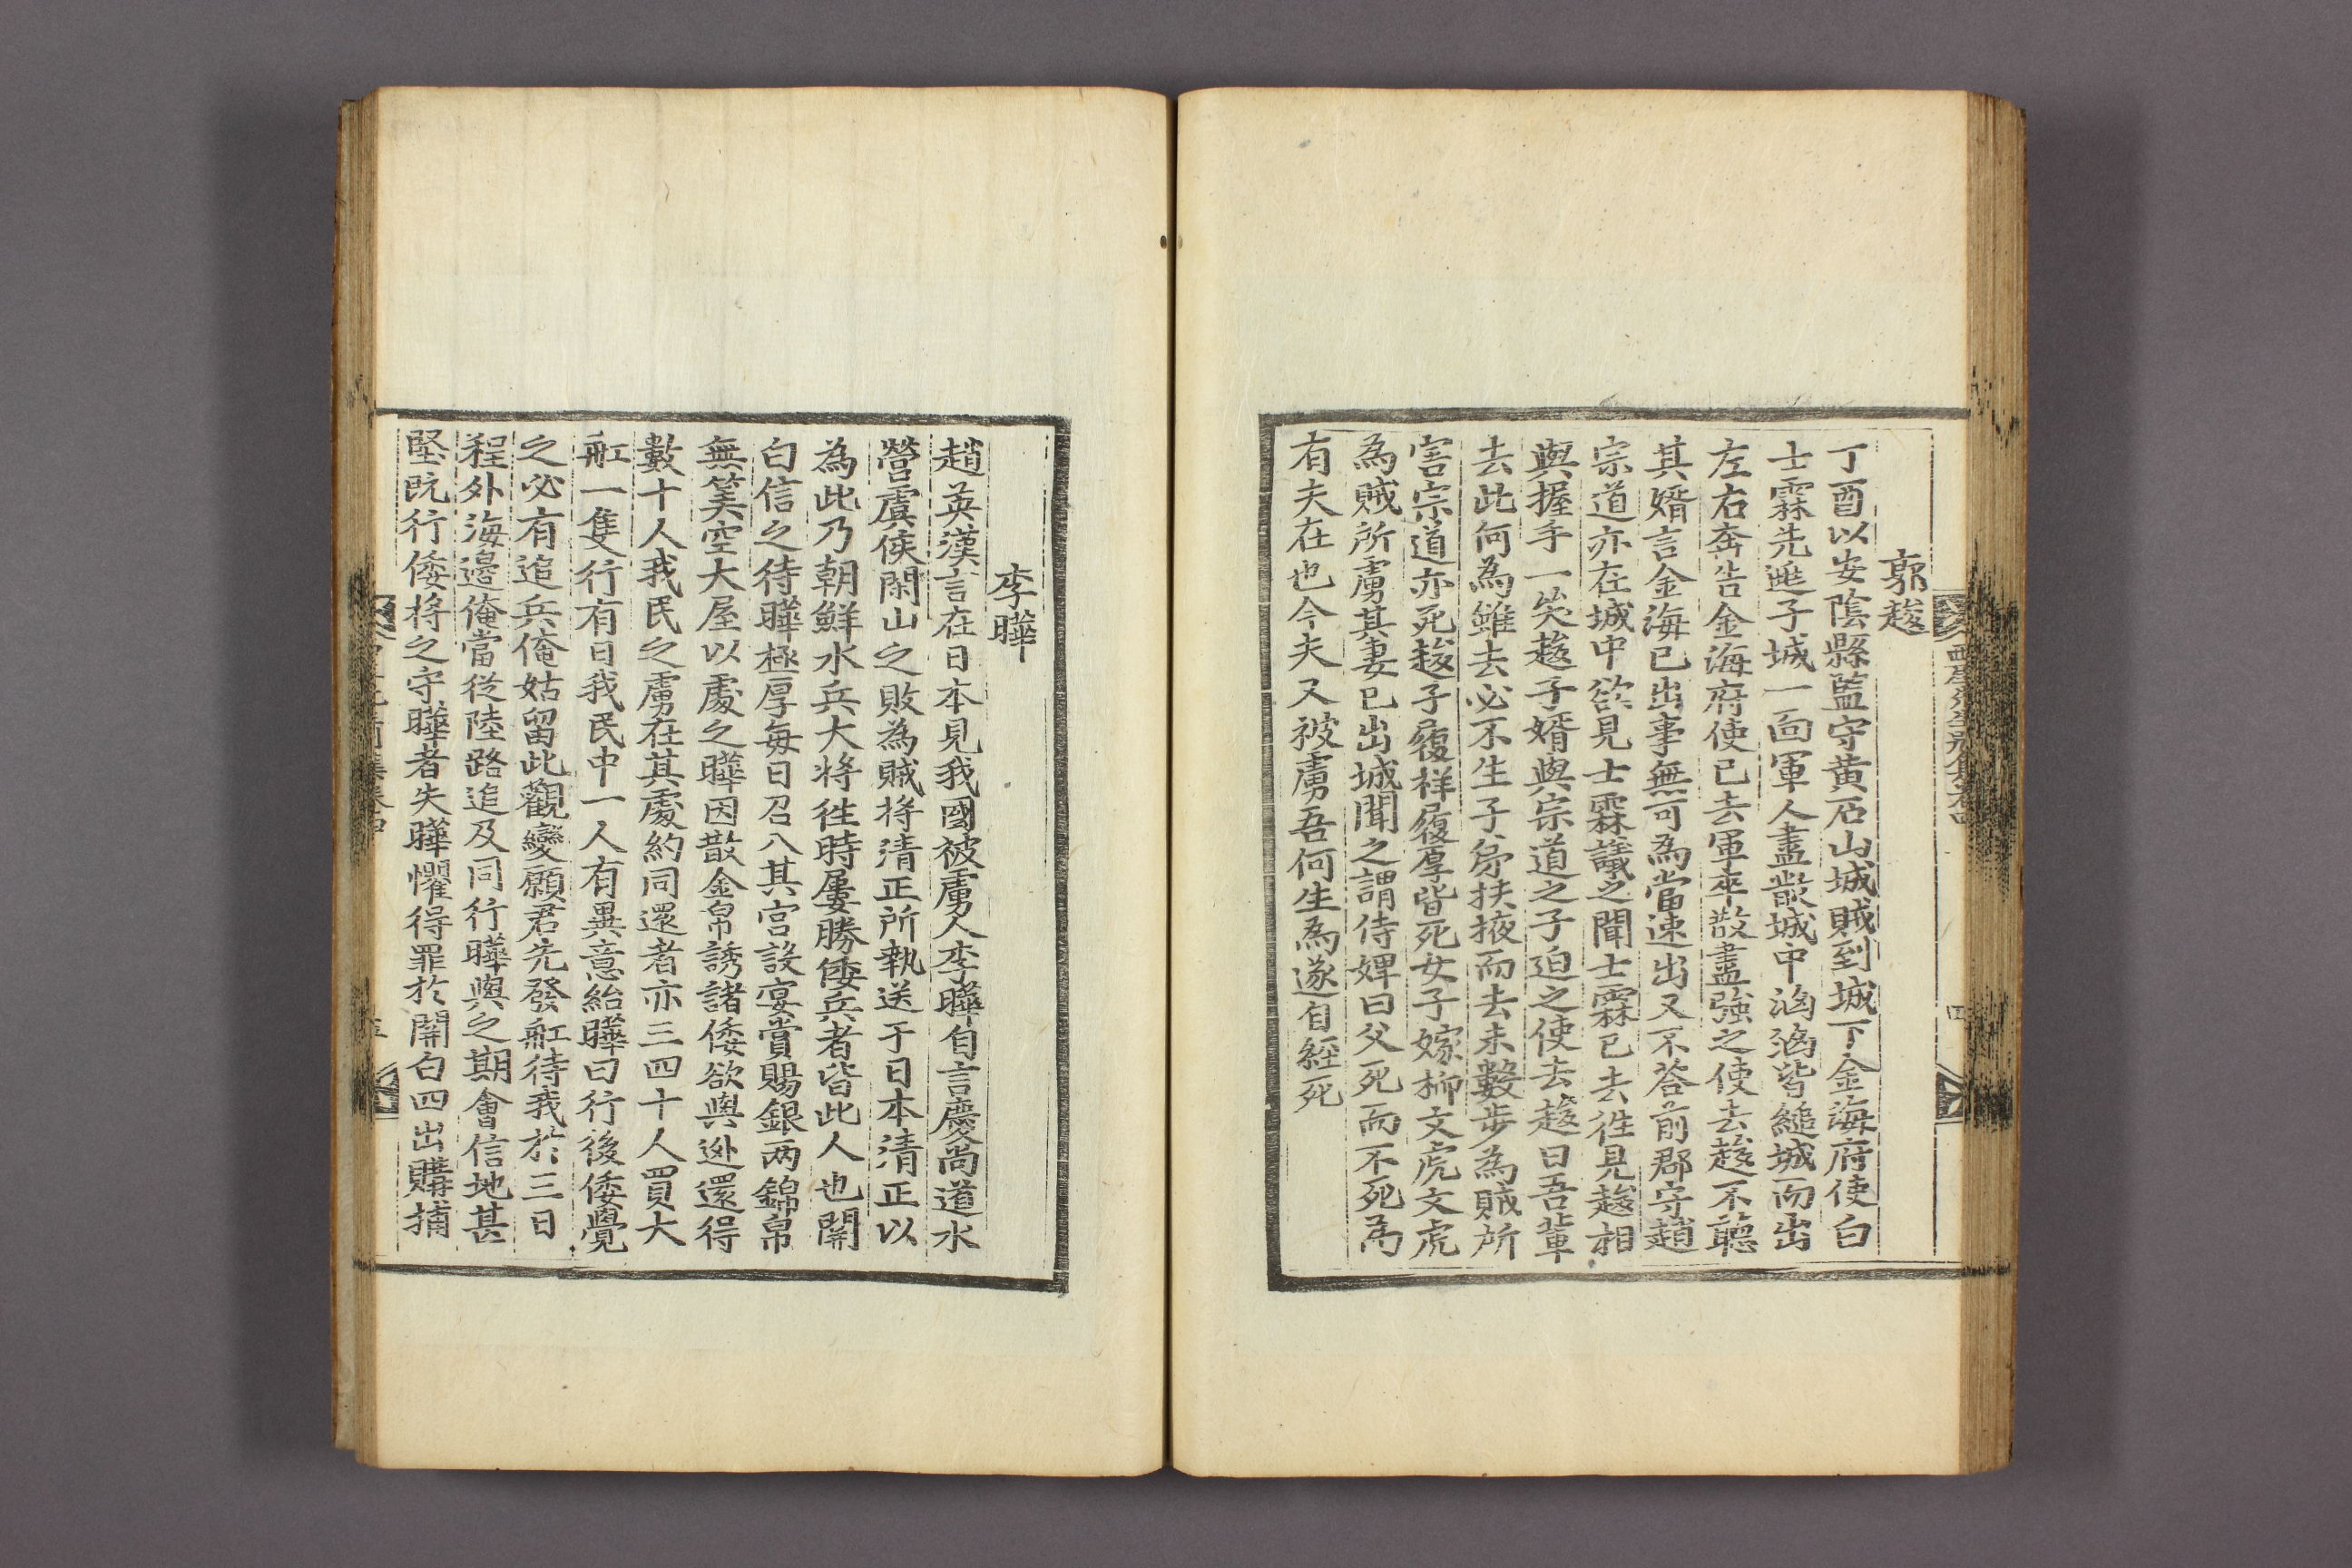 郭䞭
丁酉以安陰縣監守黄石山城賊到城下金海府使白
士霖先遁子城一面軍人盡散城中洶洶皆縋城而出
左右奔告金海府使已去軍卒散盡強之使去䞭不聽
其婿言金海已出事無可為當速出又不答前郡守趙
宗道亦在城中欲見士霖議之聞士霖已去徃見䞭相
與握手一笑䞭子婿與宗道之子迫之使去䞭曰吾輩
去此何為雖去必不生子弟扶掖而去未數步為賊所
害宗道亦死䞭子履祥履厚皆死女子嫁柳文虎文虎
為賊所虜其妻已出城聞之謂侍婢曰父死而不死為
有夫在也今夫又被虜吾何生為遂自經死
李曄
趙英漢言在日本見我國被虜人李曄自言慶尚道水
營虞侯閑山之敗為賊將清正所執送于日本清正以
為此乃朝鮮水兵大將徃時屢勝倭兵者皆此人也關
白信之待曄極厚每日召入其宮設宴賞賜銀兩錦帛
無筭空大屋以處之曄因散金帛誘諸倭欲與逃還得
數十人我民之虜在其處約同還者亦三四十人買大
舡一隻行有日我民中一人有異意紿曄曰行後倭覺
之必有追兵俺姑留此觀變願君先發舡待我於三日
程外海邊俺當從陸路追及同行曄與之期會信地甚
堅既行倭將之守曄者失曄懼得罪於關白四出購捕